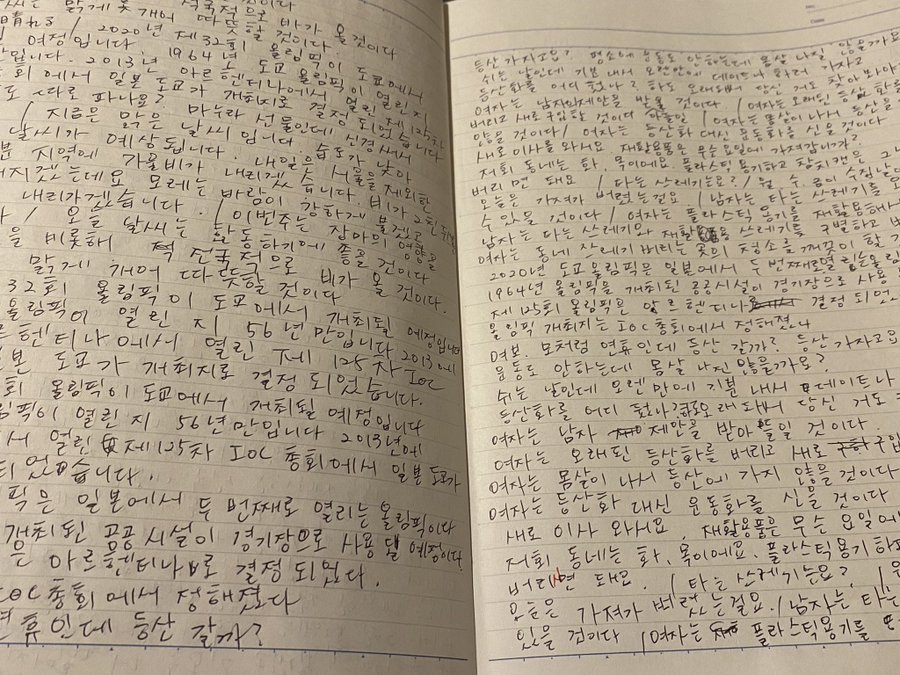 맑게 개어 따뜻할 것이다
전국적으로 비가 올 것이다
晴れる / 2020년 제32회 올림픽이 도쿄에서
여정입니다. 1964년 도쿄 올림픽이 열린 지
입니다. 2013년 아르헨티나에서 열린 제125차
회에서 일본 도쿄가 개최지로 결정 되었습니다
또 따로 파나요? 마누라 선물인데 신경써서
/ 지금은 맑은 날씨입니다 습도가 낮아
날씨가 예상됩니다. 내일은 서울을 제외한
지역에 가을비가 내리겠습니다. 비가 그친 뒤에
지겠는데요 모레는 바람이 강하게 불겠고
내리가겠습니다. / 이번주는 장마의 영향을
/ 오늘 날씨는 활동하기에 좋을 것이다
을 비롯해 전국적으로 비가 올 것이다.
맑게 개어 따뜻할 것이다
32회 올림픽이 도쿄에서 개최될 예정입니다
올림픽이 열린 지 56년만입니다 2013에
르헨티나에서 열린 제 125차 IOC
본 도쿄가 개최지로 결정 되었습니다.
회 올림픽이 도쿄에서 개최될 예정입니다
림픽이 열린 지 56년만입니다 2013년에
서 열린 제125차 IOC 총회에서 일본 도쿄가
되었습니다.
픽은 일본에서 두 번째로 열리는 올림픽이다
개최된 공공시설이 경기장으로 사용될 예정이다.
은 아르헨티나로 결정 되었다.
IOC총회에서 정해졌다
연휴인데 등산 갈까?
등산 가자고요? 평소에 운동도 안하는데 몸살 나진 않을까요
쉬는 날인데 기분 내서 오랜만에 데이트나 하러 가자고
등산화를 어디 뒀나? 하도 오래돼서 당신 거도 찾아봐야
여자는 남자의 제안을 받을 것이다 / 여자는 오래된 등산화를
버리고 새로 구입할 것이다 / 여자는 몸살이 나서 등산을
않을 것이다 / 여자는 등산화 대신 운동화를 신을 것이다
새로 이사를 와서요 재활용품은 무슨요일에 가져갑니까?
저희 동네는 화, 목이에요 플라스틱 용기하고
버리면 돼요 / 타는 쓰레기는요? / 월, 수, 금이 수집날
오늘은 가져가 버렸는걸요 / 남자는 타는 쓰레기를
수 있을 것이다 / 여자는 플라스틱 용기를 재활용해서
남자는 타는 쓰레기와 재활용 쓰레기를 구별하고
여자는 동네 쓰레기 버리는 곳의 청소를 깨끗이 할
2020년 도쿄올림픽은 일본에서 두 번째로 열리는 올림
1964년 올림픽을 개최된 공공시설이 경기장으로 사용
제 125회 올림픽은 아르헨티나로 결정 되었
올림픽 개최지는 IOC 총회에서 정해졌다
여보. 모처럼 연휴인데 등산 갈까? 등산 가자고요
운동도 안하는데 몸살 나진 않을까요?
쉬는 날인데 오랜만에 기분 내서 데이트나
등산화를 어디 뒀나? 하도 오래돼서 당신 거도
여자는 남자 제안을 받아들일 것이다.
여자는 오래된 등산화를 버리고 새로 구입
여자는 몸살이 나서 등산에 가지 않을 것이다
여자는 등산화 대신 운동화를 신을 것이다
새로 이사 와서요, 재활용품은 무슨 요일에
저희 동네는 화, 목이에요. 플라스틱 용기 하고
버리면 돼요. / 타는 쓰레기는요? /
오늘은 가져가 버렸는걸요. / 남자는 타는
있을 것이다 / 여자는 플라스틱용기를